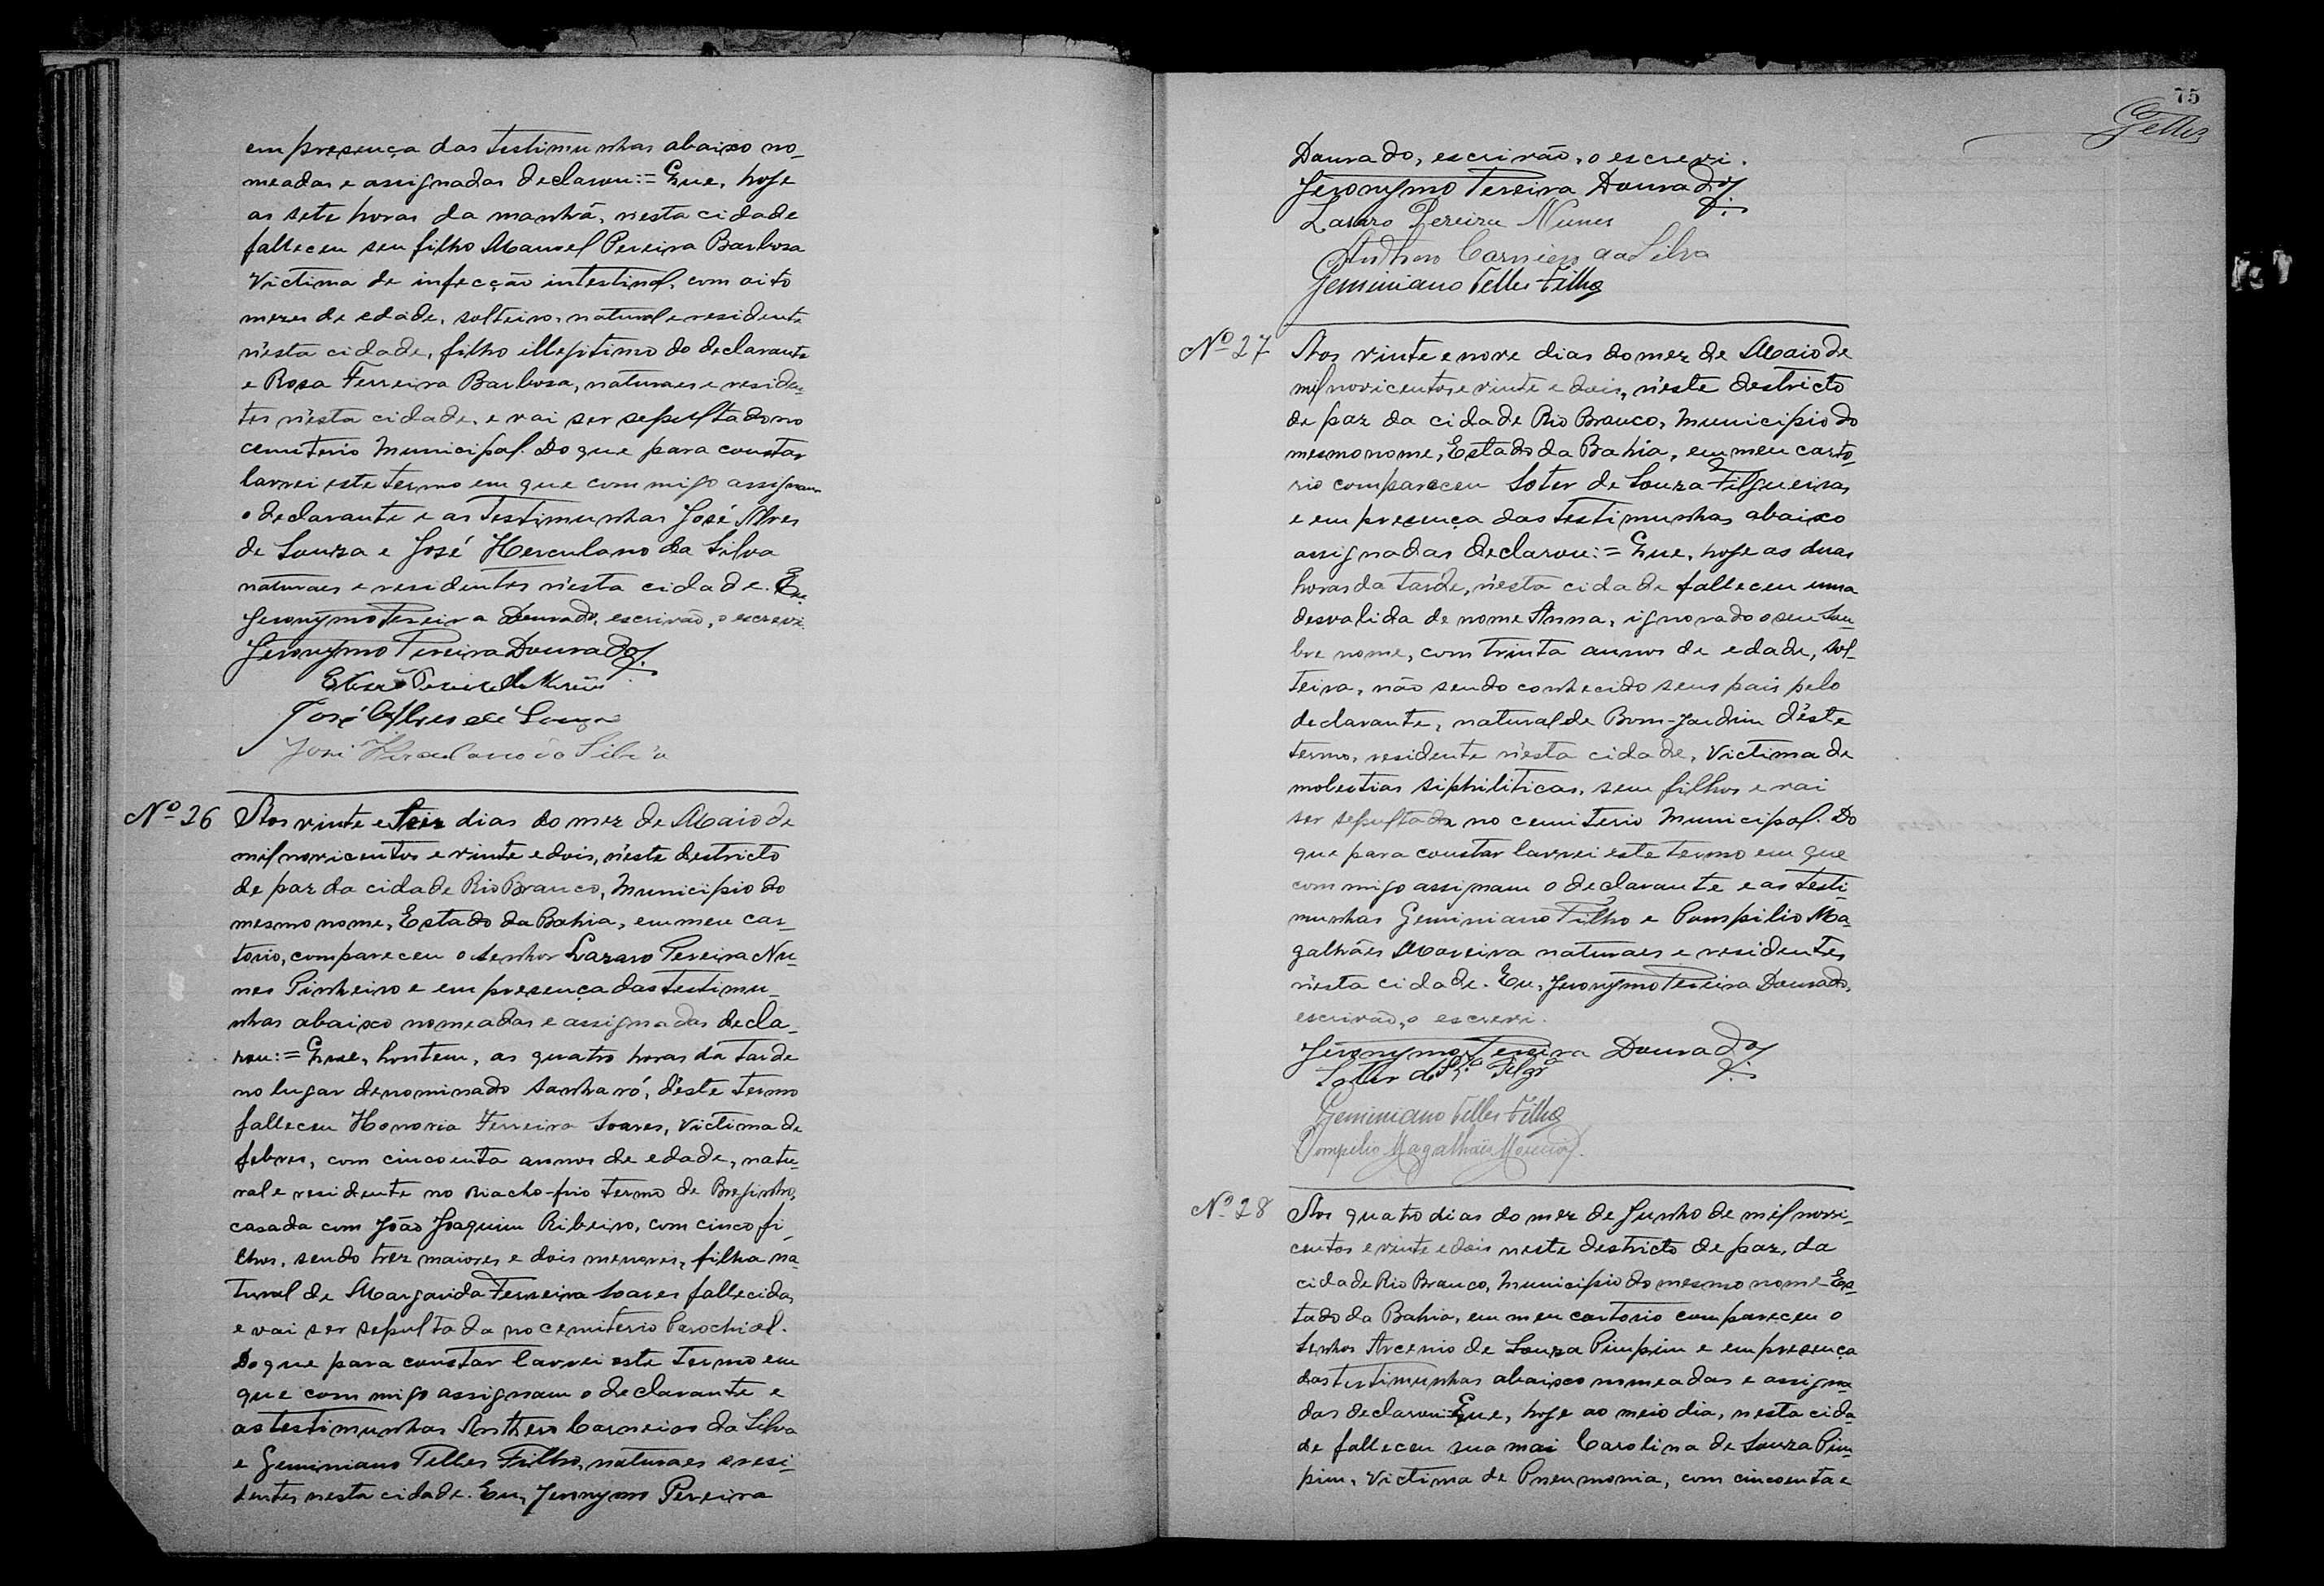 em presença das testimunhas abaixo no-
meadas e assignadas declarou:= Que, hoje
as sete horas da manhã, n'esta cidade
falleceu seu filho Manoel Pereira Barbosa
victima de infecção intestinal, com oito
mezes de edade, solteiro, natural e residente
n'esta cidade, filho illegitimo do declarante
e Rosa Ferreira Barbosa, naturaes e residen-
tes n'esta cidade, e vai ser sepultado no
cemiterio Municipal. Do que para constar
lavrei este termo em que commigo assignam
o declarante e as testimunhas José Alves
de Souza e José Herculano da Silva
naturaes e residentes n'esta cidade. Eu,
Jeronymo Pereira Dourado, escrivão, o escrevi.
Jeronymo Pereira Dourado
José Alves de Souza
José Herculano da Silva
Nº 26 Aos vinte e seis dias do mez de Maio de
mil novicentos e vinte e dois, n'este destricto
de paz da cidade Rio Branco, Municipio do
mesmo nome, Estado da Bahia, em meu car-
torio, compareceu o senhor Lazaro Pereira Nu-
nes Pinheiro e em presença das testimu-
nhas abaixo nomeadas e assignadas decla-
rou:= Que, hontem, as quatro horas da tarde
no lugar denominado Sanharó, d'este termo
falleceu Honoria Ferreira Soares, victima de
febres, com cincoenta annos de edade, natu-
ral e residente no Riacho-frio termo de Brejinho,
casada com João Joaquim Ribeiro, com cinco fi-
lhos, sendo trez maiores e dois menores, filha na-
tural de Margarida Ferreira Soares fallecida,
e vai ser sepultada no cemiterio Parochial.
Do que para constar lavrei este termo em
que commigo assignam o declarante e
as testimunhas Anthero Carneiro da Silva
e Geminiano Telles Filho, naturaes e resi-
dentes nesta cidade. Eu, Jeronymo Pereira
75
Telles
Dourado, escrivão, o escrevi.
Jeronymo Pereira Dourado
Lazaro Pereira Nunes
Anthero Carneiro da Silva
Geminiano Telles Filho
Nº 27 Aos vinte e nove dias do mez de Maio de
mil novicentos e vinte e dois, n'este destricto
de paz da cidade Rio Branco, Municipio do
mesmo nome, Estado da Bahia, em meu carto-
rio compareceu Soter de Souza Filgueiras
e em presença das testimunhas abaixo
assignadas declarou:= Que, hoje as duas
horas da tarde, n'esta cidade falleceu uma
desvalida de nome Anna, ignorado o seu Sou-
bre nome, com trinta annos de edade, sol-
teira, não sendo conhecido seus pais pelo
declarante, natural de Bom-Jardim d'este
termo, residente n'esta cidade, victima de
molestias siphiliticas, sem filhos e vai
ser sepultada no cemiterio Municipal. Do
que para constar lavrei este termo em que
commigo assignam o declarante e as testi-
munhas Geminiano Filho e Pompilio Ma-
galhães Moreira naturaes e residentes
n'esta cidade. Eu, Jeronymo Pereira Dourado,
escrivão, o escrevi.
Jeronymo Pereira Dourado
Soter de Sza Filgº
Geminiano Telles Filho
Pompilio Magalhães Moreira
Nº 28 Aos quatro dias do mez de Junho de mil novi-
centos e vinte e dois neste destricto de paz, da
cidade Rio Branco, Municipio do mesmo nome Es-
tado da Bahia, em meu cartorio compareceu o
senhor Arcenio de Souza Pimpim e em presença
das testimunhas abaixo nomeadas e assigna-
das declarou:= Que, hoje ao meio dia, nesta cida-
de falleceu sua mai Carolina de Souza Pim-
pim, victima de Pneumonia, com cincoenta e